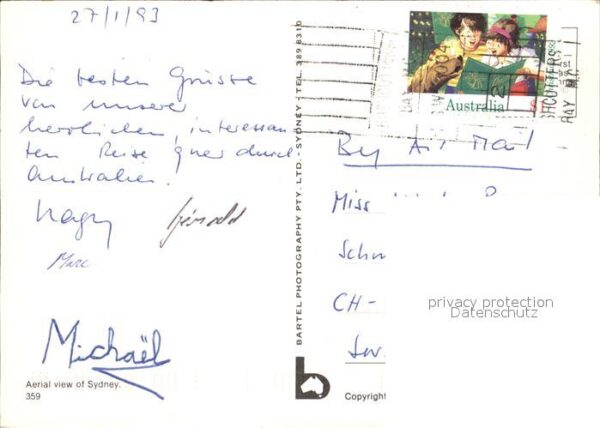 27/1/93
Die besten Grüsse
von unserer
herrlichen, interessan
ten Reise quer durch
Australien.
Gérald
Marc
Michaël
Aerial view of Sydney.
359
BARTEL PHOTOGRAPHY PTY. LTD. - SYDNEY - TEL. 389 6310
b
Copyright
Australia
By Air Mail
Miss
CH-
privacy protection
Datenschutz